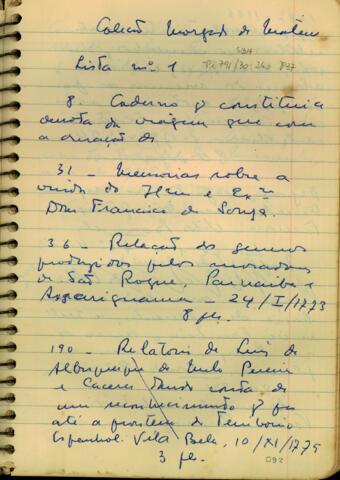 Coleção Morgado de Mateus
Lista nº 1
8. Caderno q constitui a
da viagem que com
a duração de
31 - Memorias sobre a
vinda do Illm e Exmo
Dom Francisco de Souza.
36 - Relação dos generos
produzidos pelos moradores
de São Roque, Parnaiba e
Assariguama - 24/I/1773
8 fls.
190 - Relatorio de Luis de
Albuquerque de Melo Pereira
e Caceres dando conta de
um reconhecimento q fez
até a fronteira do Territorio
Espanhol. Vila Bela, 10/XI/1775
3 fls.
092